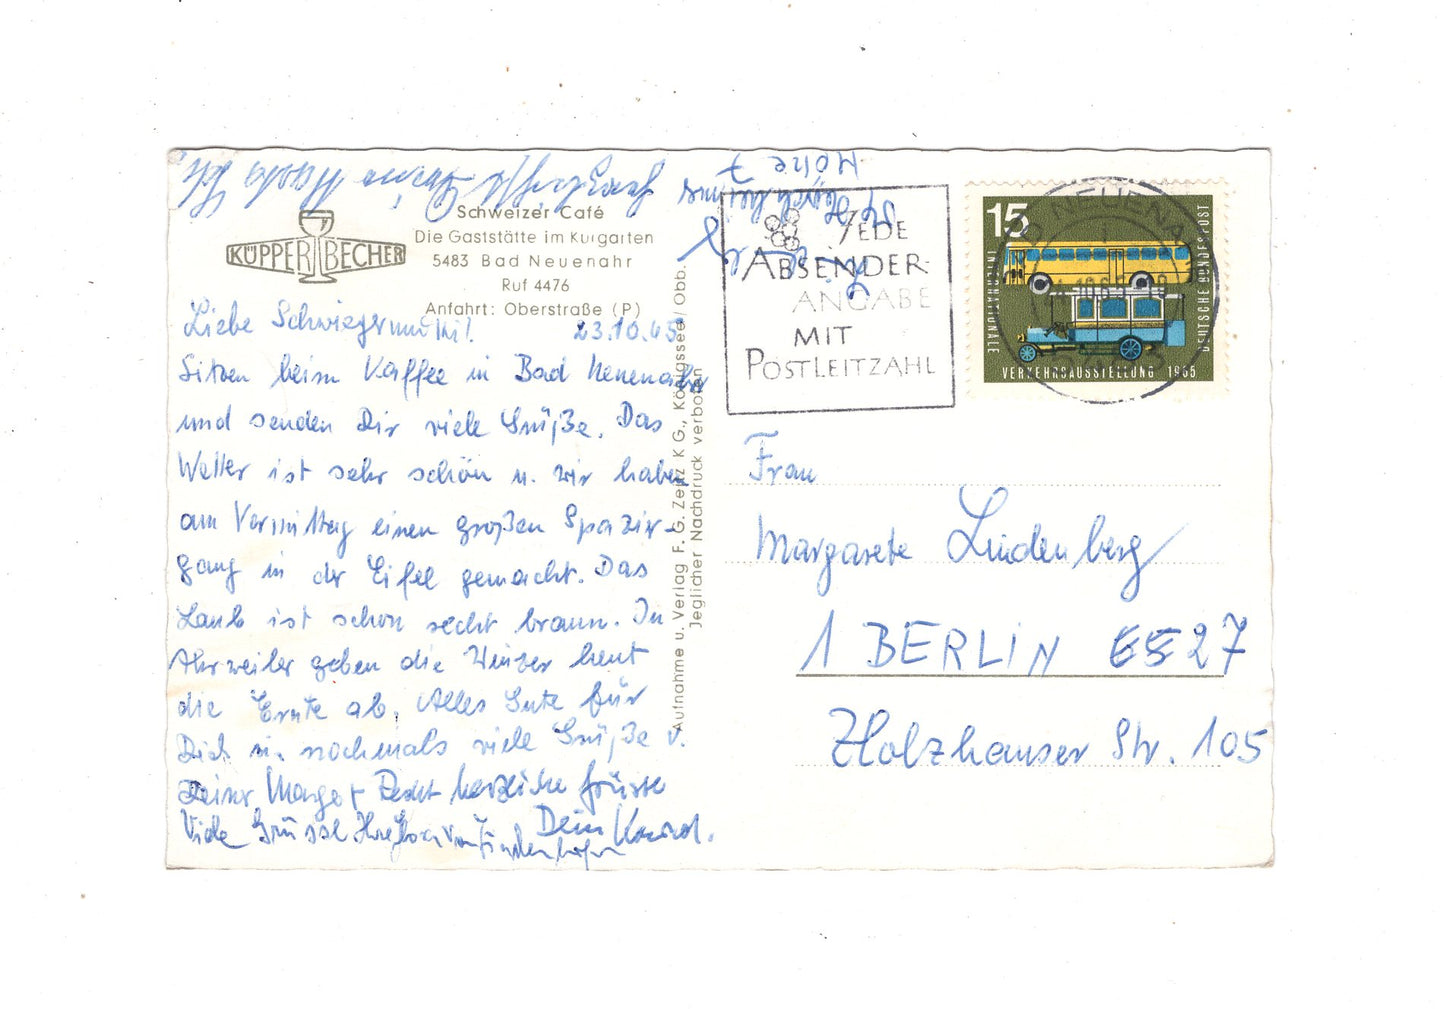 KÜPPER BECHER
Schweizer Café
Die Gaststätte im Kurgarten
5483 Bad Neuenahr
Ruf 4476
Anfahrt: Oberstraße (P)
Liebe Schwiegermutti! 23.10.65
Sitzen beim Kaffee in Bad Neuenahr
und senden Dir viele Grüße. Das
Wetter ist sehr schön u. wir haben
am Vormittag einen großen Spazier-
gang in der Eifel gemacht. Das
Laub ist schon recht braun. In
Ahrweiler geben die Winzer heut
die Ernte ab. Alles Gute für
Dich u. nochmals viele Grüße v.
Deiner Margot Recht herzliche Grüsse
Dein Konrad.
Viele Grüsse Ihre von
Aufnahme u. Verlag F. G. Zeitz K G., Königssee/Obb.
Jeglicher Nachdruck verboten
JEDE
ABSENDER-
ANGABE
MIT
POSTLEITZAHL
BAD NEUENAHR
15
INTERNATIONALE
VERKEHRSAUSSTELLUNG 1965
DEUTSCHE BUNDESPOST
Frau
Margarete Lindenberg
1 BERLIN 27
Holzhauser Str. 105